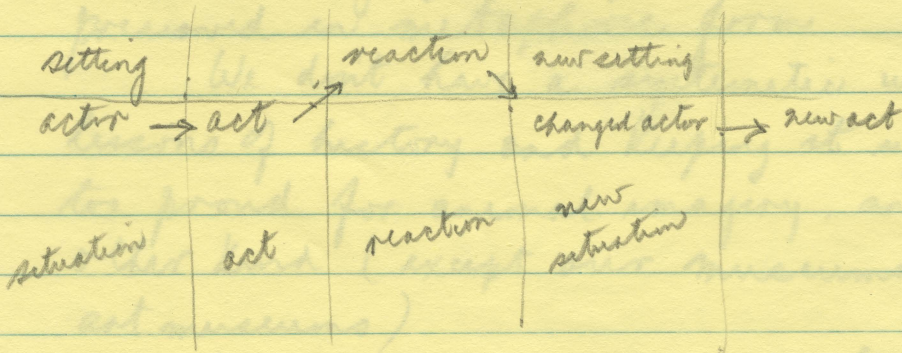 setting reaction new setting
actor → act changed actor → new act
situation act reaction new situation